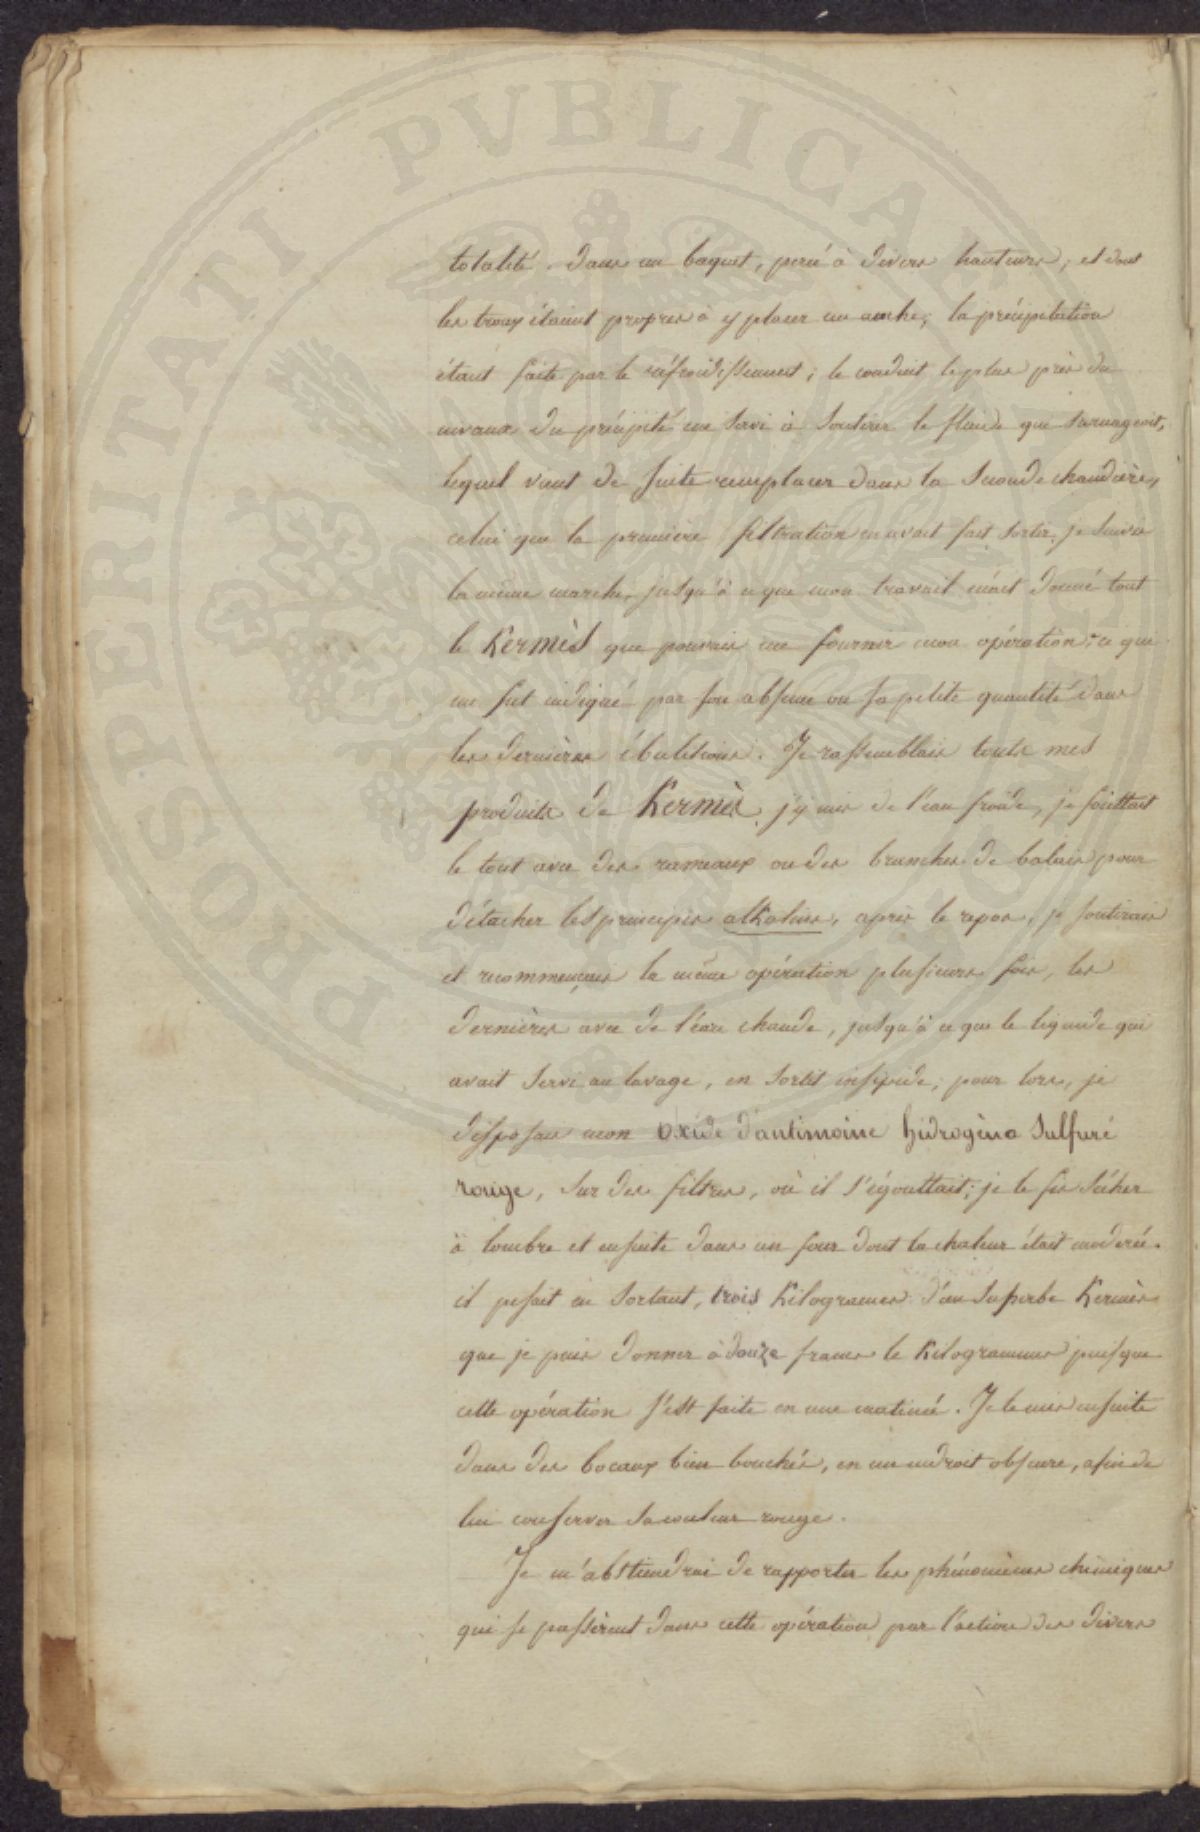 totalité dans un baquet, percé à divers hauteurs, et dont
les trous étaient propres à y placer un anche; la précipitation
étant faite par le réfroidissement; le conduit le plus près du
niveaux du précipité me servi à soutirer le fluide que surnageoit,
lequel vient de suite remplacer dans la seconde chaudière,
celui que la première filtration en avait fait sortir. je suivis
la même marche, jusqu'à ce que mon travail m'ait donné tout
le Kermès que pouvais me fournir mon opération; ce que
me fut indiqué par son absence ou sa petite quantité dans
les dernières ébulitions. Je rassemblais touts mes
produits de Kermès, j'y mis de l'eau froide, je foüettait
le tout avec des rameaux ou des branches de balais pour
détacher les principes alkalins, après le repos, je soutirais
et recommençais la même opération plusieurs fois, les
dernières avec de l'eau chaude, jusqu'à ce que le liquide qui
avait servi au lavage, en sortit insipide; pour lors, je
disposais mon oxide d'antimoine hidrogèno sulfuré
rouge, sur des filtres, où il s'égouttait; je le fis sécher
à l'ombre et ensuite dans un four dont la chaleur était modérée.
il pesait en sortant, trois Kilogrames d'un superbe Kermès
que je puis donner à douze francs le Kilogramme puisque
cette opération s'est faite en une matinée. Je le mis ensuite
dans des bocaux bien bouchés, en un endroit obscure, afin de
lui conserver sa couleur rouge.
Je m'abstiendrai de rapporter les phénomènes chimiques
qui se passèrent dans cette opération par l'action des divers
PROSPERITATI PVBLICAE